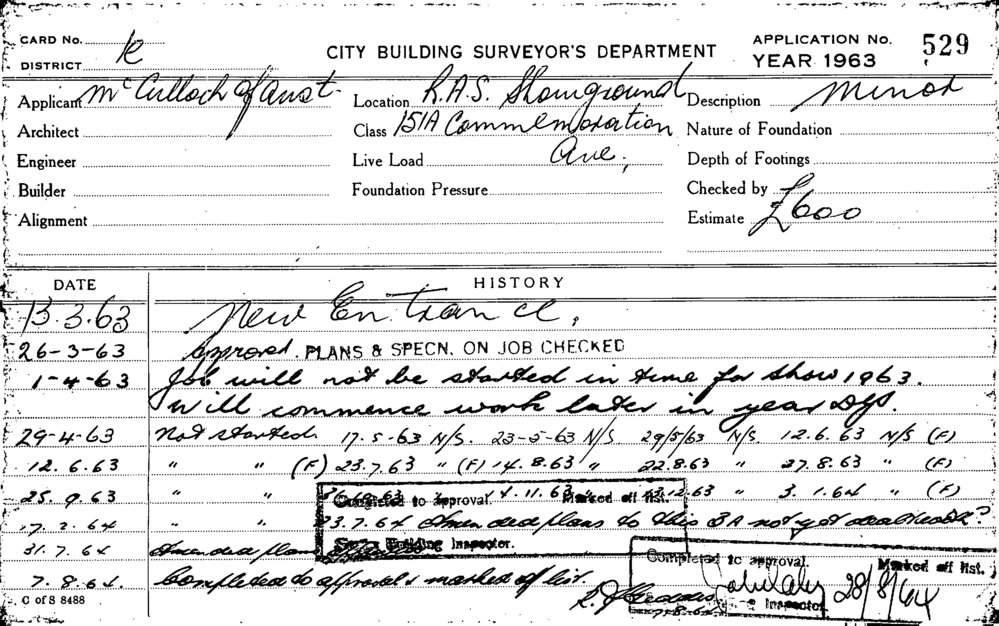 CARD No.
DISTRICT K
CITY BUILDING SURVEYOR'S DEPARTMENT
APPLICATION No. 529
YEAR 1963
Applicant McCulloch of Aust.
Location R.A.S. Showground
Description Minor
Architect
Class 151A Commemoration
Nature of Foundation
Engineer
Live Load Ave,
Depth of Footings
Builder
Foundation Pressure
Checked by
Alignment
Estimate £600
DATE HISTORY
13.3.63 New Entrance.
26-3-63 Approved. PLANS & SPECN. ON JOB CHECKED
1-4-63 Job will not be started in time for show 1963.
Will commence work later in year
29-4-63 Not started. 17.5-63 N/S. 23-5-63 N/S. 29/5/63 N/S. 12.6.63 N/S (F)
12.6.63 " " (F) 23.7.63 " (F) 14.8.63 " 22.8.63 " 27.8.63 " (F)
25.9.63 " " 4.11.63 12.63 " 3.1.64 " (F)
Completed to approval. Marked off list.
17.2.64 " " 23.7.64 Amended plans to this BA not yet dealt with?
Building Inspector.
31.7.64 Amended plans
7.8.64. Completed to approval & marked off list.
Completed to approval. Marked off list.
28/8/64
Inspector
C of S 8488